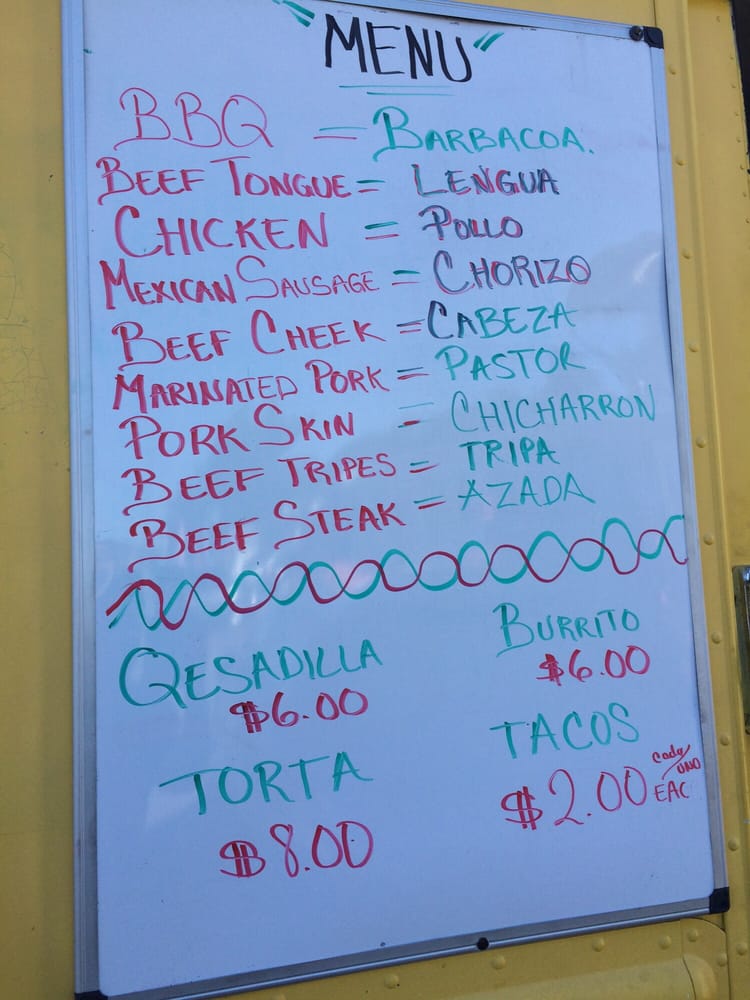 "MENU"
BBQ = BARBACOA.
BEEF TONGUE = LENGUA
CHICKEN = POLLO
MEXICAN SAUSAGE = CHORIZO
BEEF CHEEK = CABEZA
MARINATED PORK = PASTOR
PORK SKIN = CHICHARRON
BEEF TRIPES = TRIPA
BEEF STEAK = AZADA
QESADILLA
$6.00
BURRITO
$6.00
TORTA
$8.00
TACOS
$2.00 cada/UNO
EAC